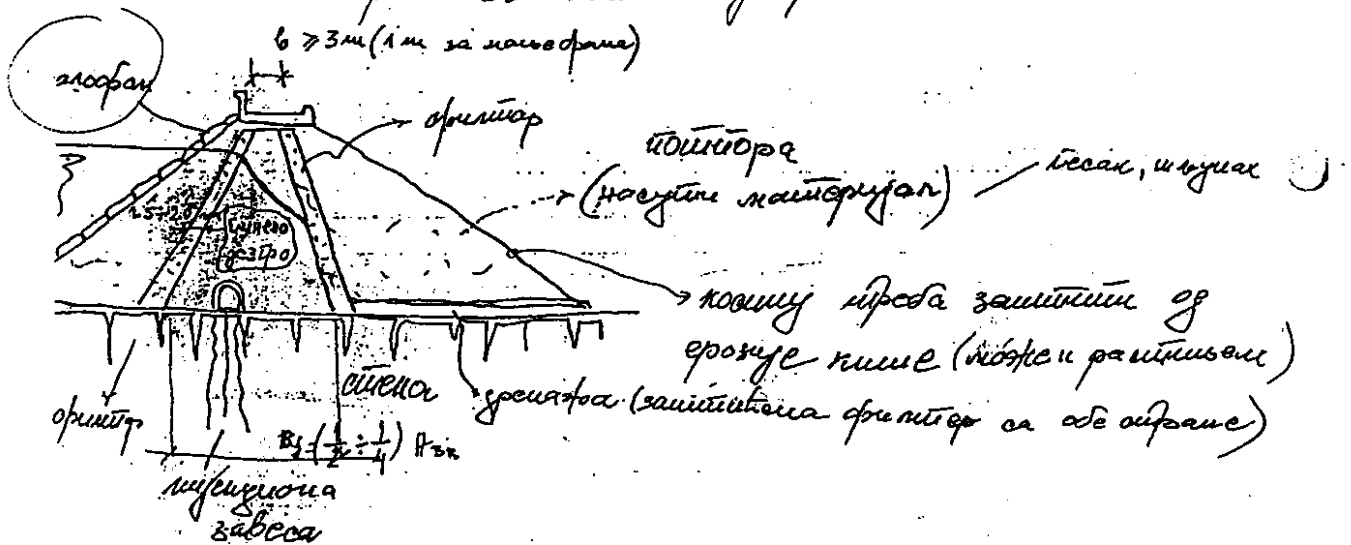 b ≥ 3m (1m за мање бране)
филтар
потпора
(насути материјал)
песак, шљунак
глинено
језгро
косину треба заштити од
ерозије кише (може и растињем)
стена
дренажа (заштићена филтер са обе стране)
филтер
инјекциона
завеса